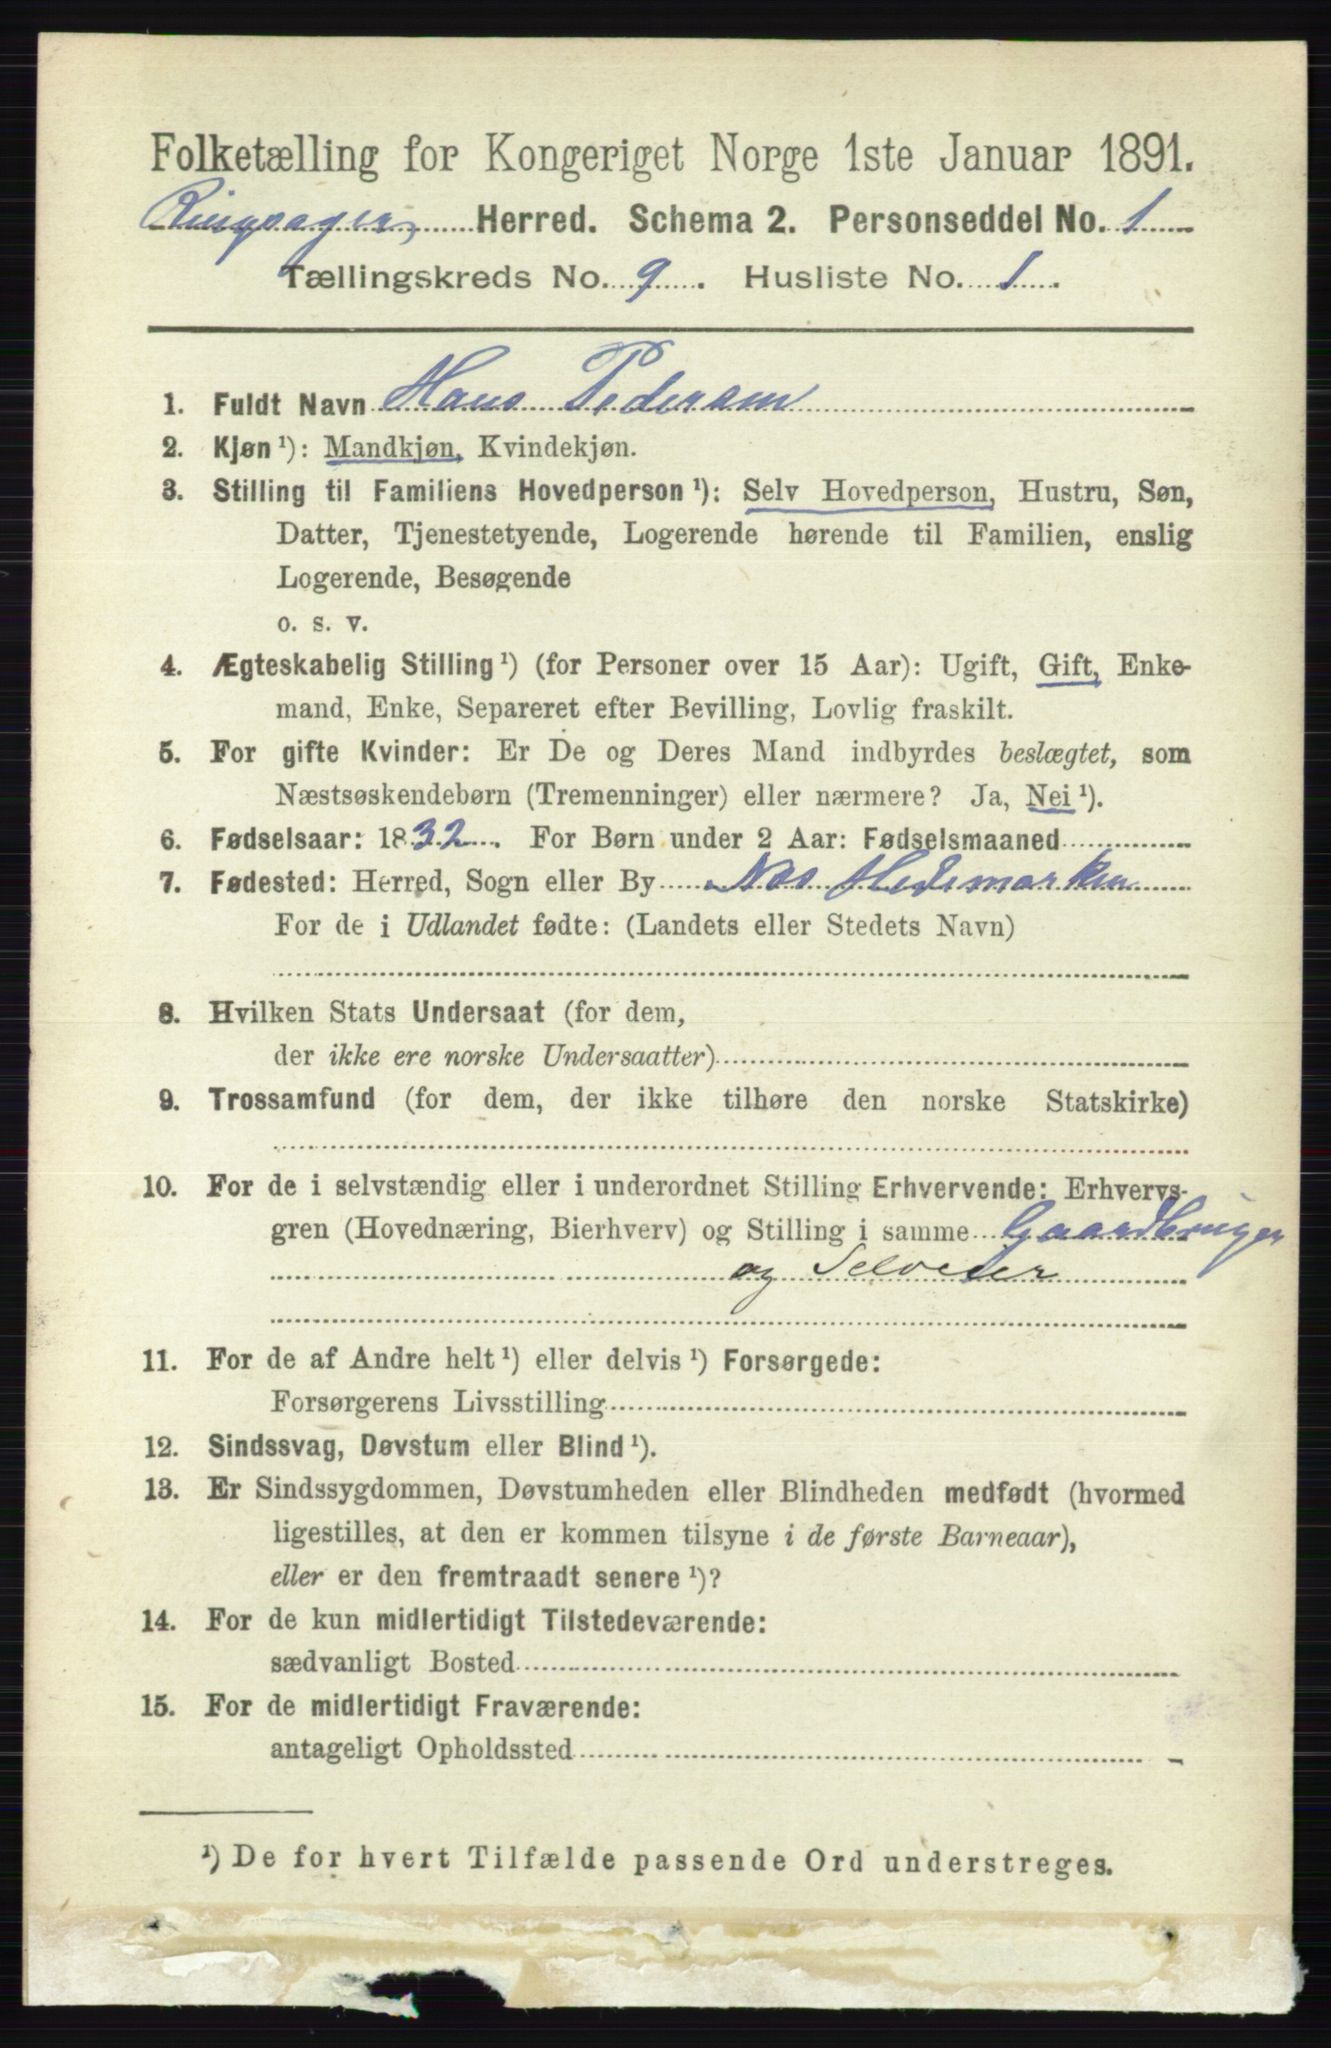 Folketælling for Kongeriget Norge 1ste Januar 1891.
Ringsager, Herred. Schema 2. Personseddel No. 1
Tællingskreds No. 9. Husliste No. 1.
1. Fuldt Navn Hans Pedersen
2. Kjøn ¹): Mandkjøn, Kvindekjøn.
3. Stilling til Familiens Hovedperson ¹): Selv Hovedperson, Hustru, Søn,
Datter, Tjenestetyende, Logerende hørende til Familien, enslig
Logerende, Besøgende
o. s. v.
4. Ægteskabelig Stilling ¹) (for Personer over 15 Aar): Ugift, Gift, Enke-
mand, Enke, Separeret efter Bevilling, Lovlig fraskilt.
5. For gifte Kvinder: Er De og Deres Mand indbyrdes beslægtet, som
Næstsøskendebørn (Tremenninger) eller nærmere? Ja, Nei ¹).
6. Fødselsaar: 1832. For Børn under 2 Aar: Fødselsmaaned
7. Fødested: Herred, Sogn eller By Næs Hedemarken
For de i Udlandet fødte: (Landets eller Stedets Navn)
8. Hvilken Stats Undersaat (for dem,
der ikke ere norske Undersaatter)
9. Trossamfund (for dem, der ikke tilhøre den norske Statskirke)
10. For de i selvstændig eller i underordnet Stilling Erhvervende: Erhvervs-
gren (Hovednæring, Bierhverv) og Stilling i samme Gaardbruger
og Selveier
11. For de af Andre helt ¹) eller delvis ¹) Forsørgede:
Forsørgerens Livsstilling
12. Sindssvag, Døvstum eller Blind ¹).
13. Er Sindssygdommen, Døvstumheden eller Blindheden medfødt (hvormed
ligestilles, at den er kommen tilsyne i de første Barneaar),
eller er den fremtraadt senere ¹)?
14. For de kun midlertidigt Tilstedeværende:
sædvanligt Bosted
15. For de midlertidigt Fraværende:
antageligt Opholdssted
¹) De for hvert Tilfælde passende Ord understreges.